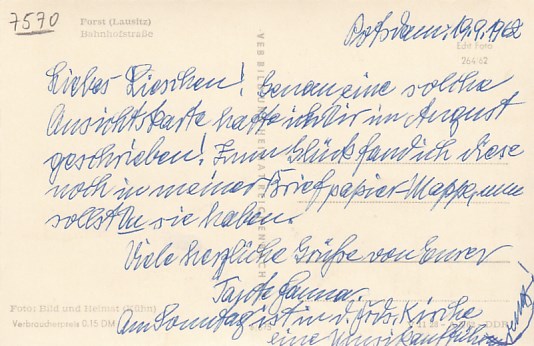 7570
Forst (Lausitz)
Bahnhofstraße
Potsdam, 19.9.1962
Echt Foto
264/62
Liebes Lieschen! Genau eine solche
Ansichtskarte hatte ich Dir im August
geschrieben! Zum Glück fand ich diese
noch in meiner Briefpapier-Mappe, nun
sollst Du sie haben.
Viele herzliche Grüße von Eurer
Tante Hanna.
Am Sonntag ist in d. Frds. Kirche
eine Musikaufführung!
Foto: Bild und Heimat (Kühn)
Verbraucherpreis 0,15 DM
DDR
VEB BILD UND HEIMAT REICHENBACH